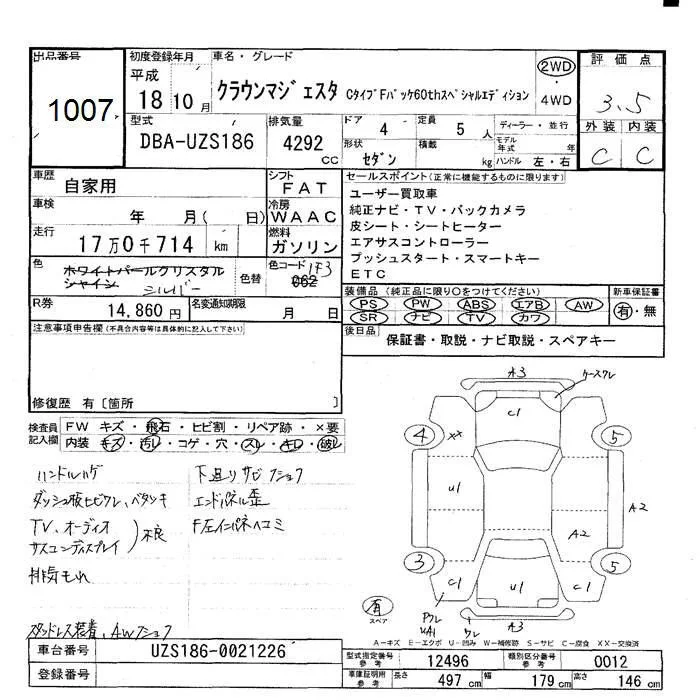 出品番号
1007
初度登録年月
平成
18 10 月
車名・グレード
クラウンマジェスタ CタイプFパッケ60thスペシャルエディション
2WD
4WD
評価点
3.5
外装 内装
C C
型式
DBA-UZS186
排気量
4292
cc
ドア
4
定員
5 人
ディーラー・並行
モデル年式 年
形状
セダン
積載
kg
ハンドル 左・右
車歴
自家用
シフト
FAT
車検
年 月( 日)
冷房
WAAC
走行
17万0千714 km
燃料
ガソリン
色
ホワイトパールクリスタル
シャイン
シルバー
色替
色コード
062
1F3
R券
14,860 円
名変通知期限
月 日
セールスポイント(正常に機能するものに限ります)
ユーザー買取車
純正ナビ・TV・バックカメラ
皮シート・シートヒーター
エアサスコントローラー
プッシュスタート・スマートキー
ETC
装備品(純正品に限り○をつけてください)
PS PW ABS エアB AW
SR ナビ TV カワ
新車保証書
有・無
後日品
保証書・取説・ナビ取説・スペアキー
注意事項申告欄(不具合内容等は具体的に記入して下さい)
修復歴 有〔箇所 〕
検査員
記入欄
FW キズ・飛石・ヒビ割・リペア跡・×要
内装 キズ・汚レ・コゲ・穴・スレ・キレ・破レ
ハンドルハゲ
ダッシュ板ヒビワレ、ベタツキ
TV、オーディオ
サスコンディスプレイ
不良
排気もれ
スタッドレス装着、AWフショク
下廻りサビフショク
エンドパネル歪
F左インパネヘコミ
A3
ケースワレ
C1
4
××
5
U1
A2
A2
3
5
C1
U1
C1
Pワレ
UA1
ワレ
A3
有
スペア
A-キズ E-エクボ U-凹み W-補修跡 S-サビ C-腐食 XX-交換済
車台番号
UZS186-0021226
登録番号
型式指定番号
参考
12496
類別区分番号
参考
0012
車庫証明用
参考
長さ
497 cm
幅
179 cm
高さ
146 cm